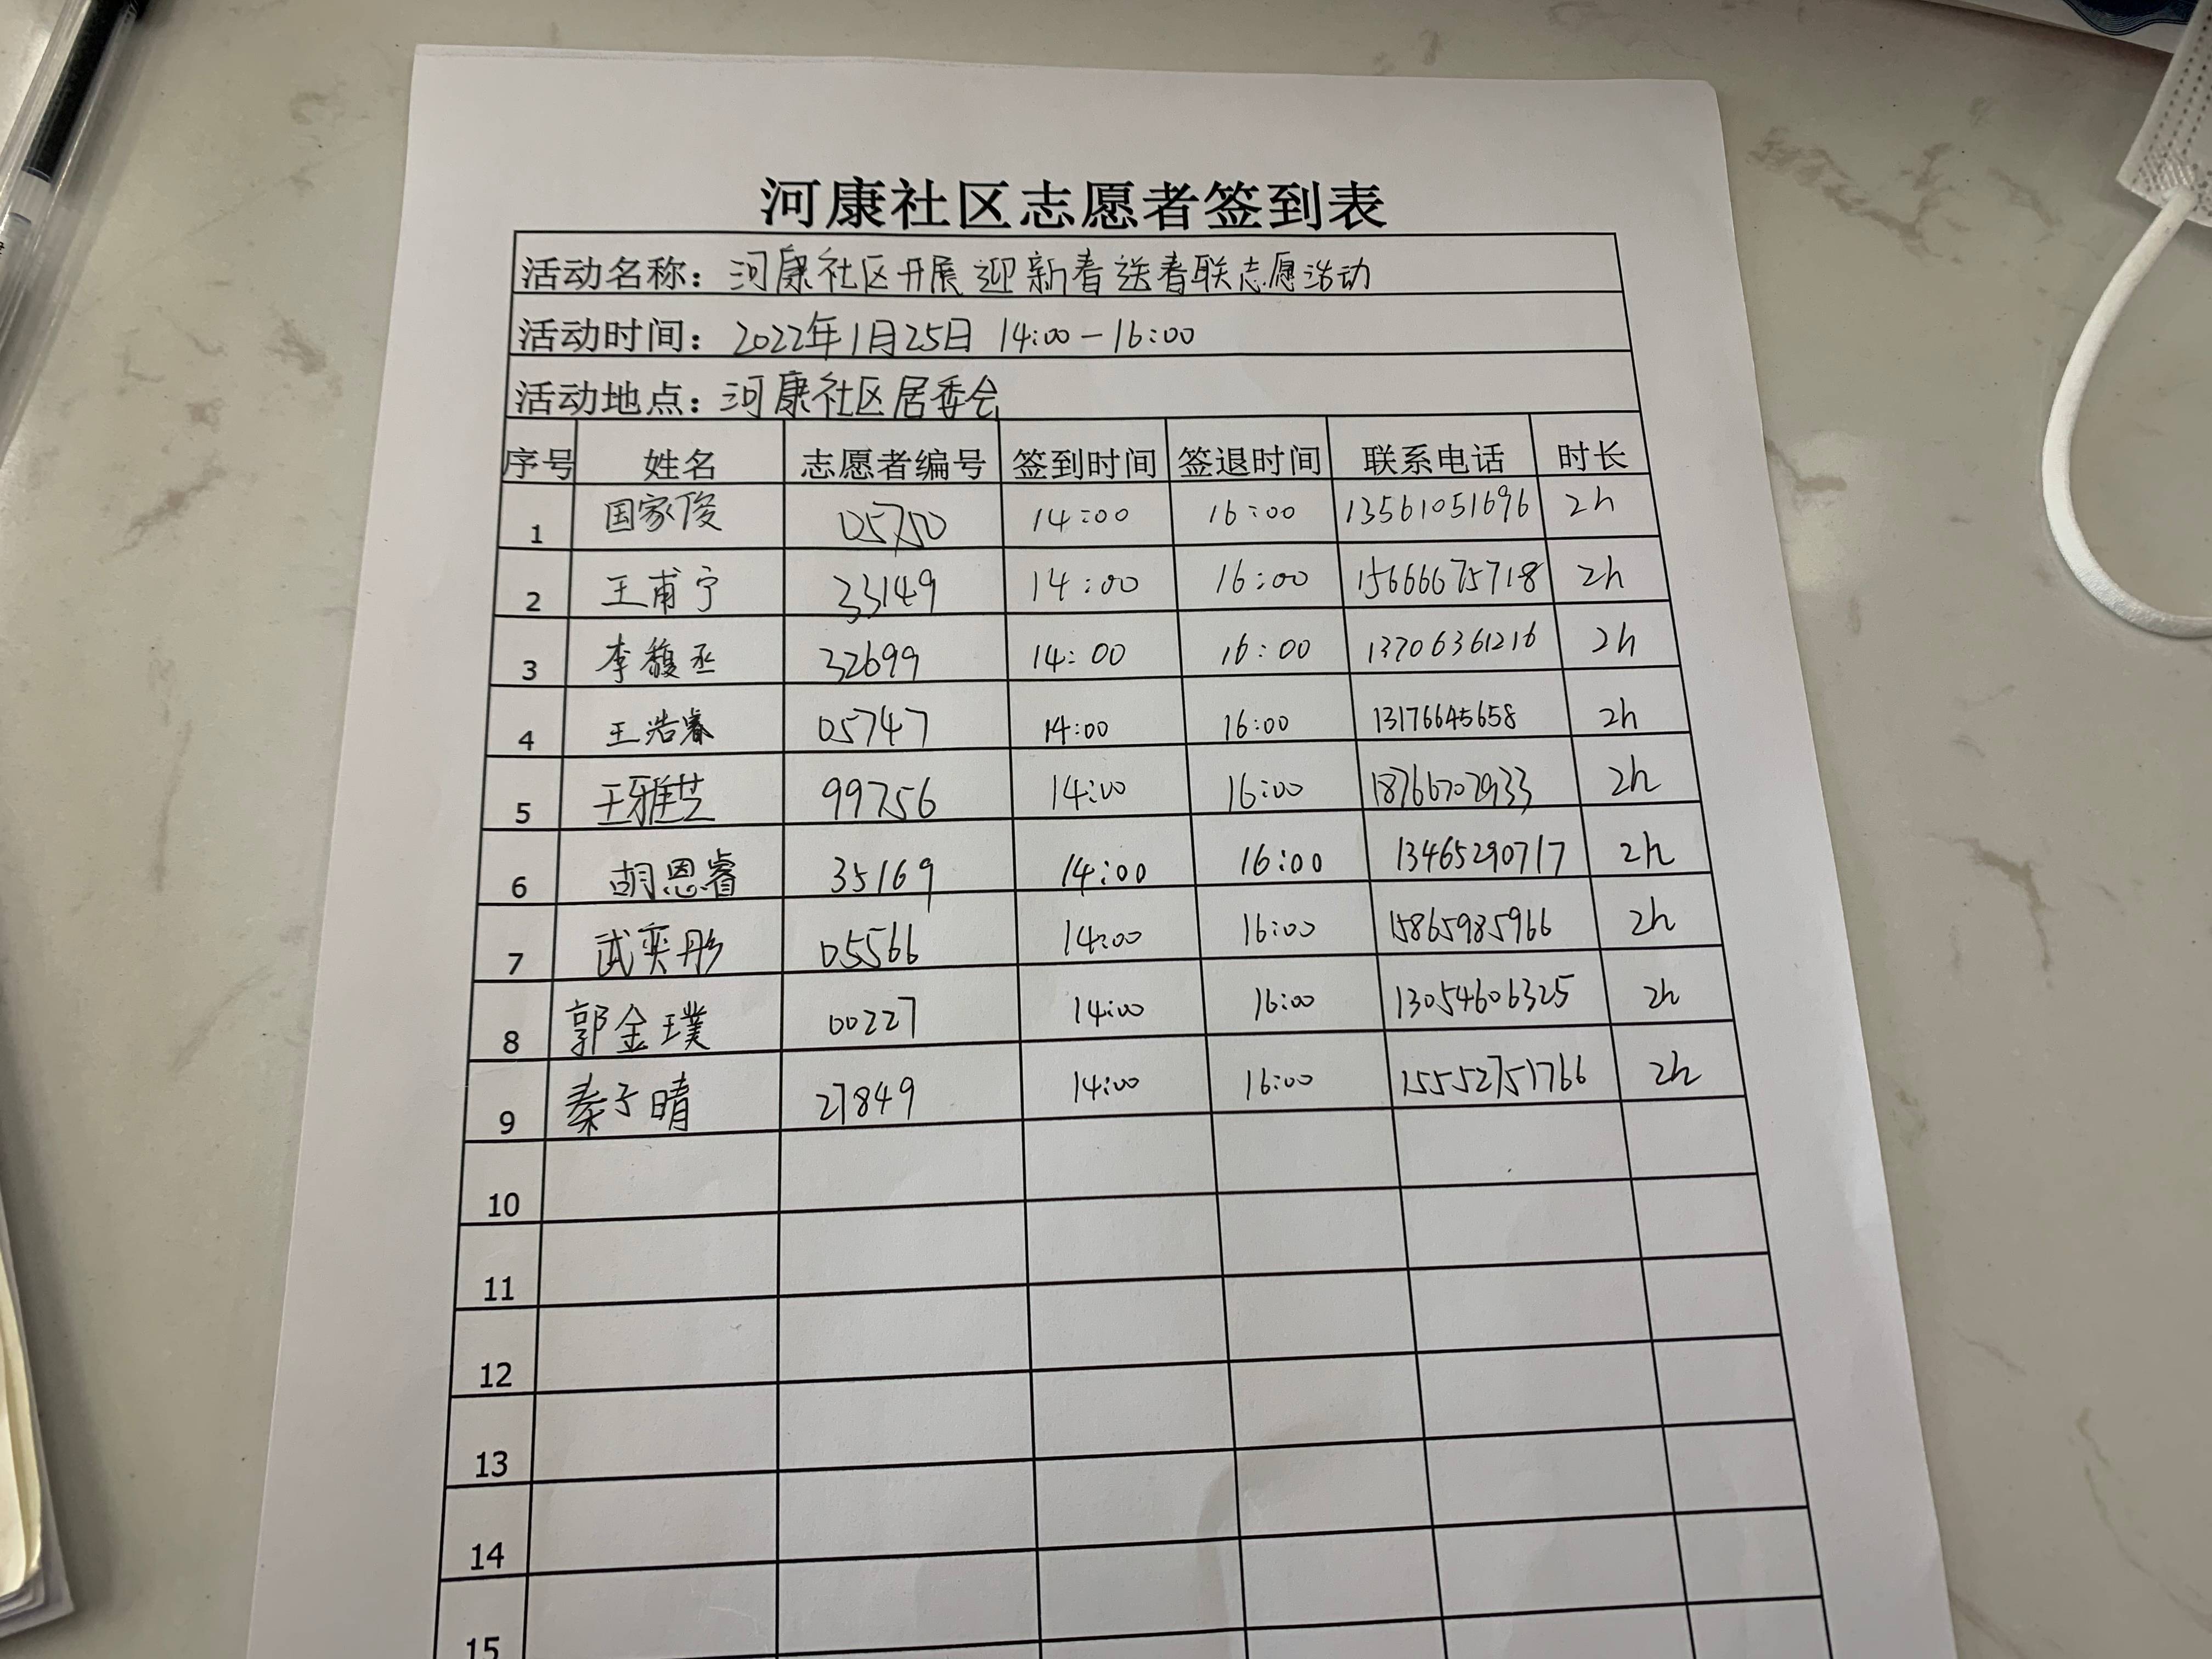 河康社区志愿者签到表
活动名称：河康社区开展迎新春送春联志愿活动
活动时间：2022年1月25日 14:00-16:00
活动地点：河康社区居委会
序号 姓名 志愿者编号 签到时间 签退时间 联系电话 时长
1 国家俊 05750 14:00 16:00 13561051696 2h
2 王甫宁 33149 14:00 16:00 15666675718 2h
3 李馥丞 32699 14:00 16:00 13706361216 2h
4 王浩睿 05747 14:00 16:00 13176645658 2h
5 王雅芝 99756 14:00 16:00 18766707933 2h
6 胡恩睿 35169 14:00 16:00 13465290717 2h
7 武奕彤 05566 14:00 16:00 15865985966 2h
8 郭金璞 00227 14:00 16:00 13054606325 2h
9 秦子晴 27849 14:00 16:00 15552751766 2h
10
11
12
13
14
15